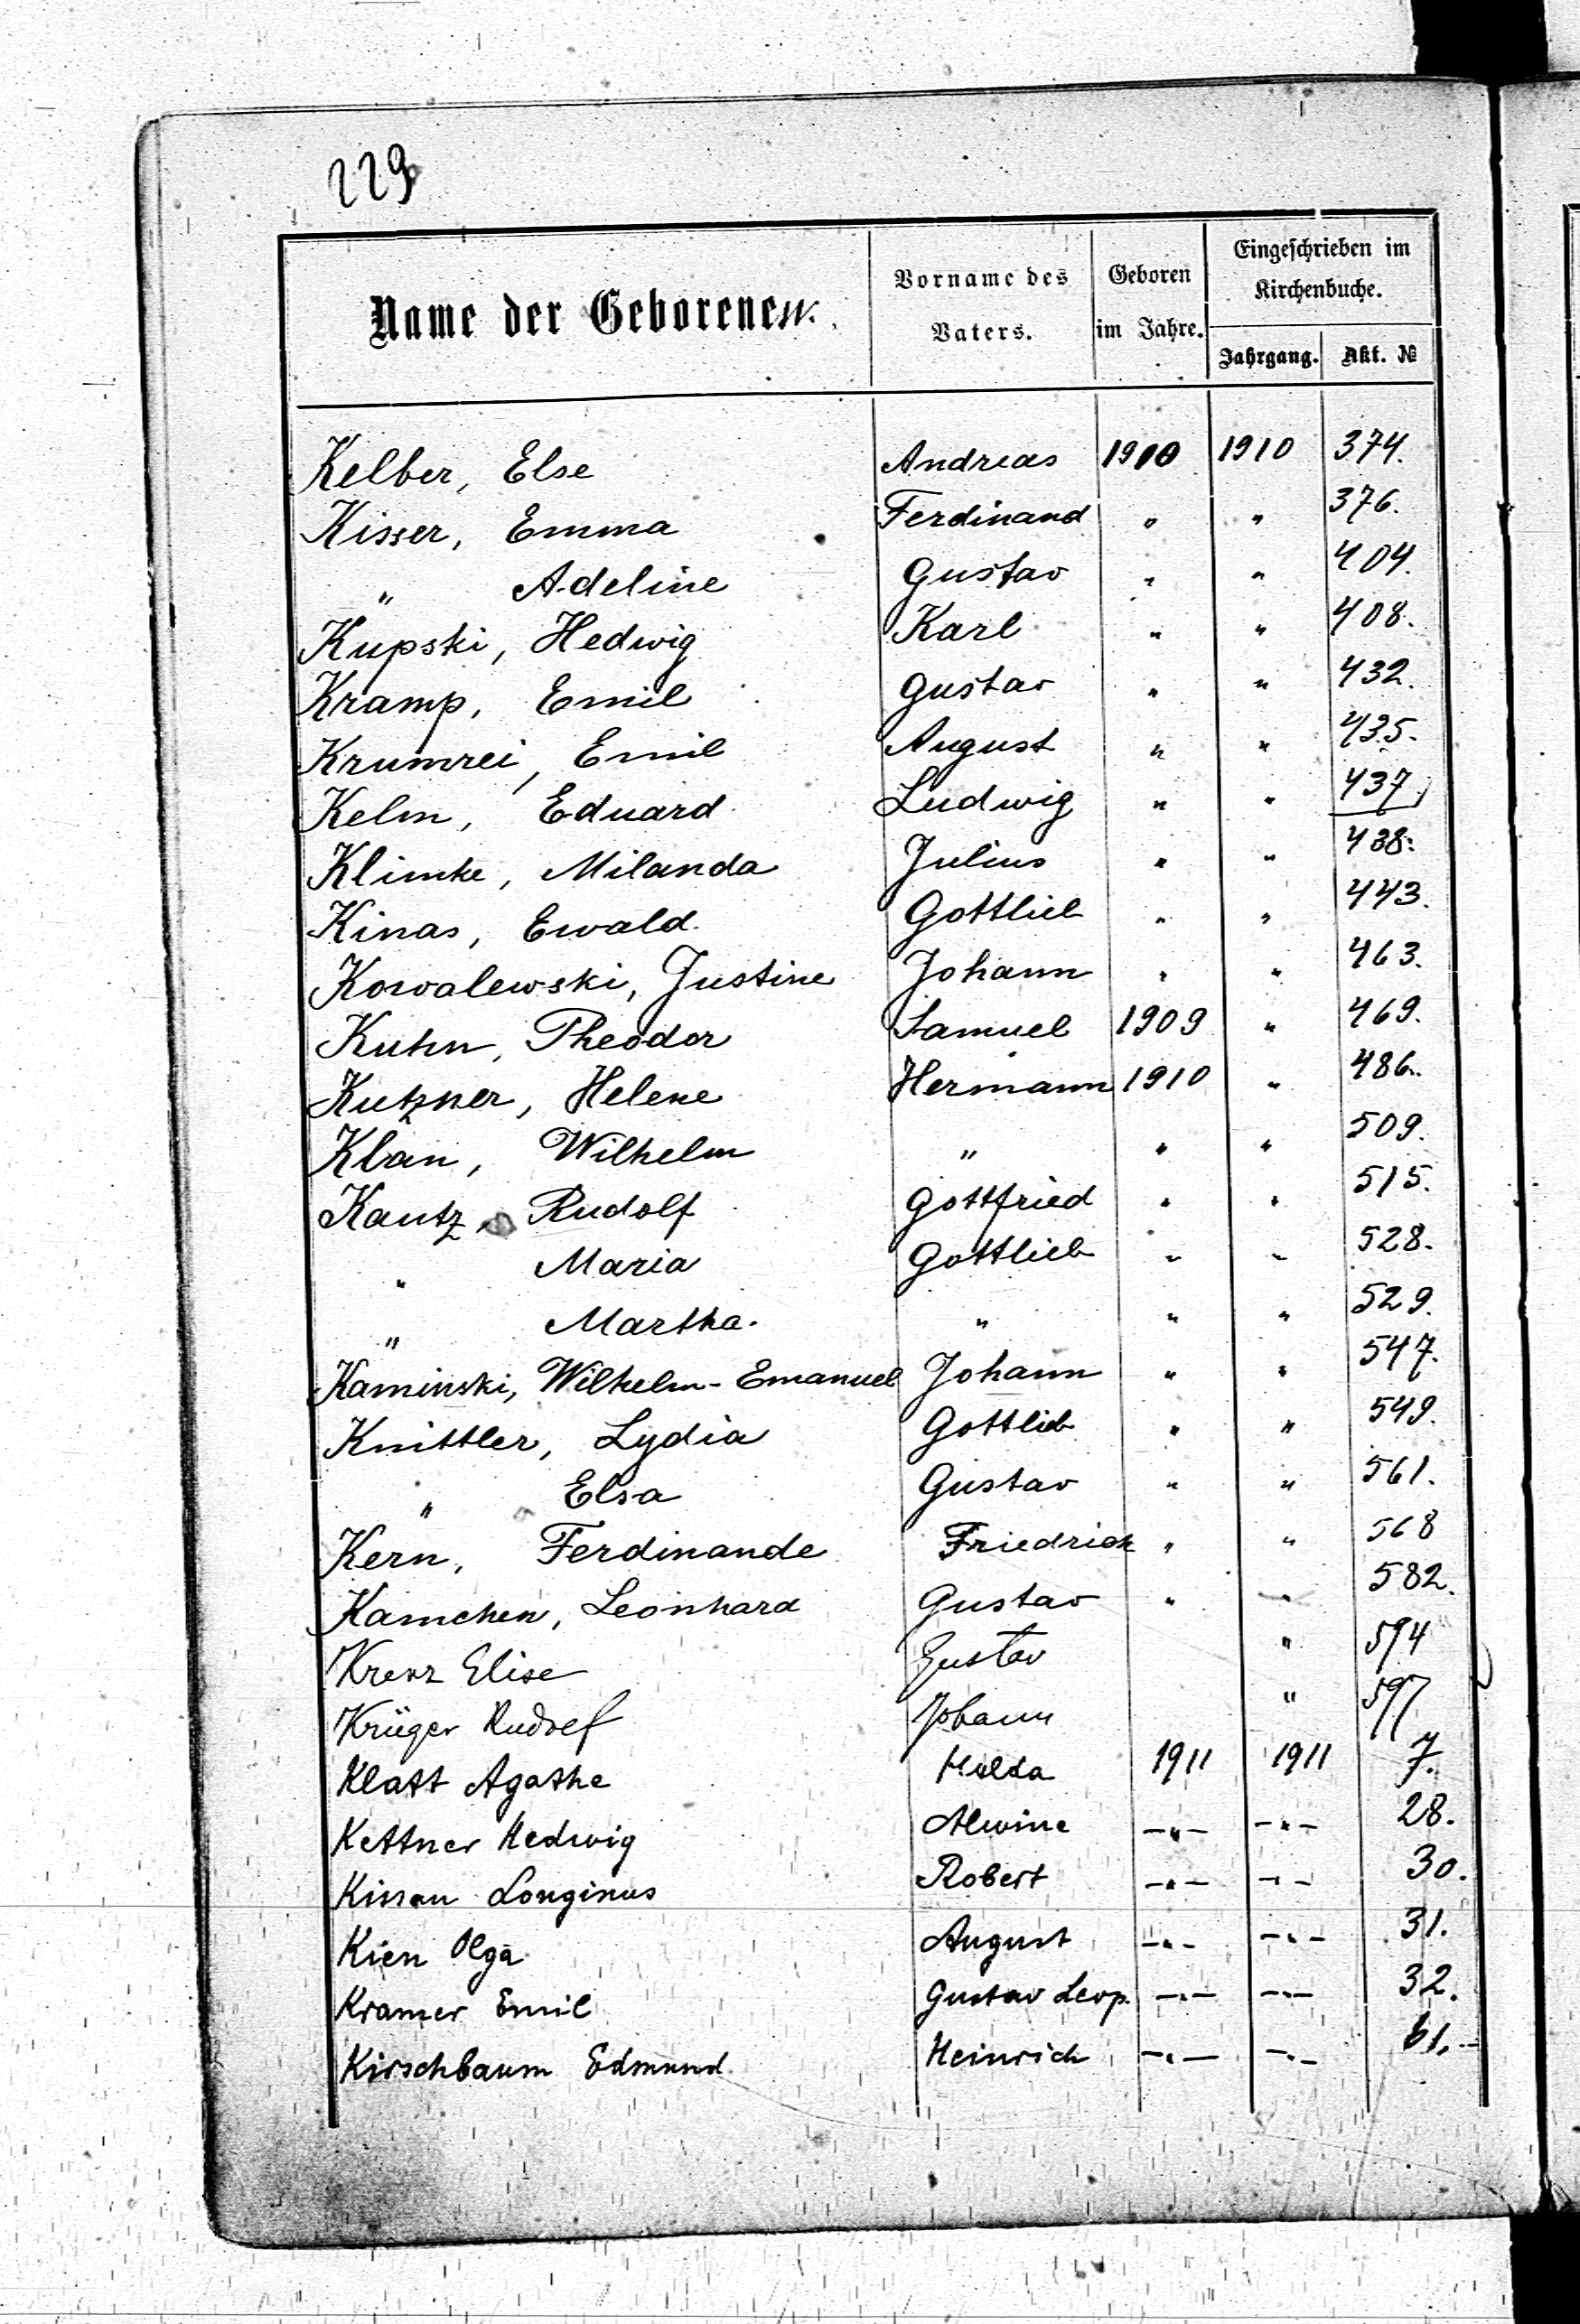 229
Name der Geborenen.
Vorname des Vaters.
Geboren im Jahre.
Eingeschrieben im Kirchenbuche.
Jahrgang. Akt. №
Kelber, Else Andreas 1910 1910 374.
Kisser, Emma Ferdinand " " 376.
" Adeline Gustav " " 404.
Kupski, Hedwig Karl " " 408.
Kramp, Emil Gustav " " 432.
Krumrei, Emil August " " 435.
Kelm, Eduard Ludwig " " 437
Klimke, Milanda Julius " " 438.
Kinas, Ewald. Gottlieb " " 443.
Kowalewski, Justine Johann " " 463.
Kuhn, Theodor Samuel 1909 " 469.
Kutzner, Helene Hermann 1910 " 486.
Klan, Wilhelm " " " 509.
Kautz, Rudolf Gottfried " " 515.
" Maria Gottlieb " " 528.
" Martha. " " " 529.
Kaminski, Wilhelm-Emanuel Johann " " 547.
Knittler, Lydia Gottlieb " " 549.
" Elsa Gustav " " 561.
Kern, Ferdinande Friedrich " " 568
Kamchen, Leonhard Gustav " " 582.
Krenz Elise Gustav " 594
Krüger Rudolf Johann " 597
Klatt Agathe Hulda 1911 1911 7.
Kettner Hedwig Alwine -"- -"- 28.
Longinus Robert -"- -"- 30.
Kien Olga August -"- -"- 31.
Kramer Emil Gustav Leop. -"- -"- 32.
Kirschbaum Edmund Heinrich -"- -"- 61.